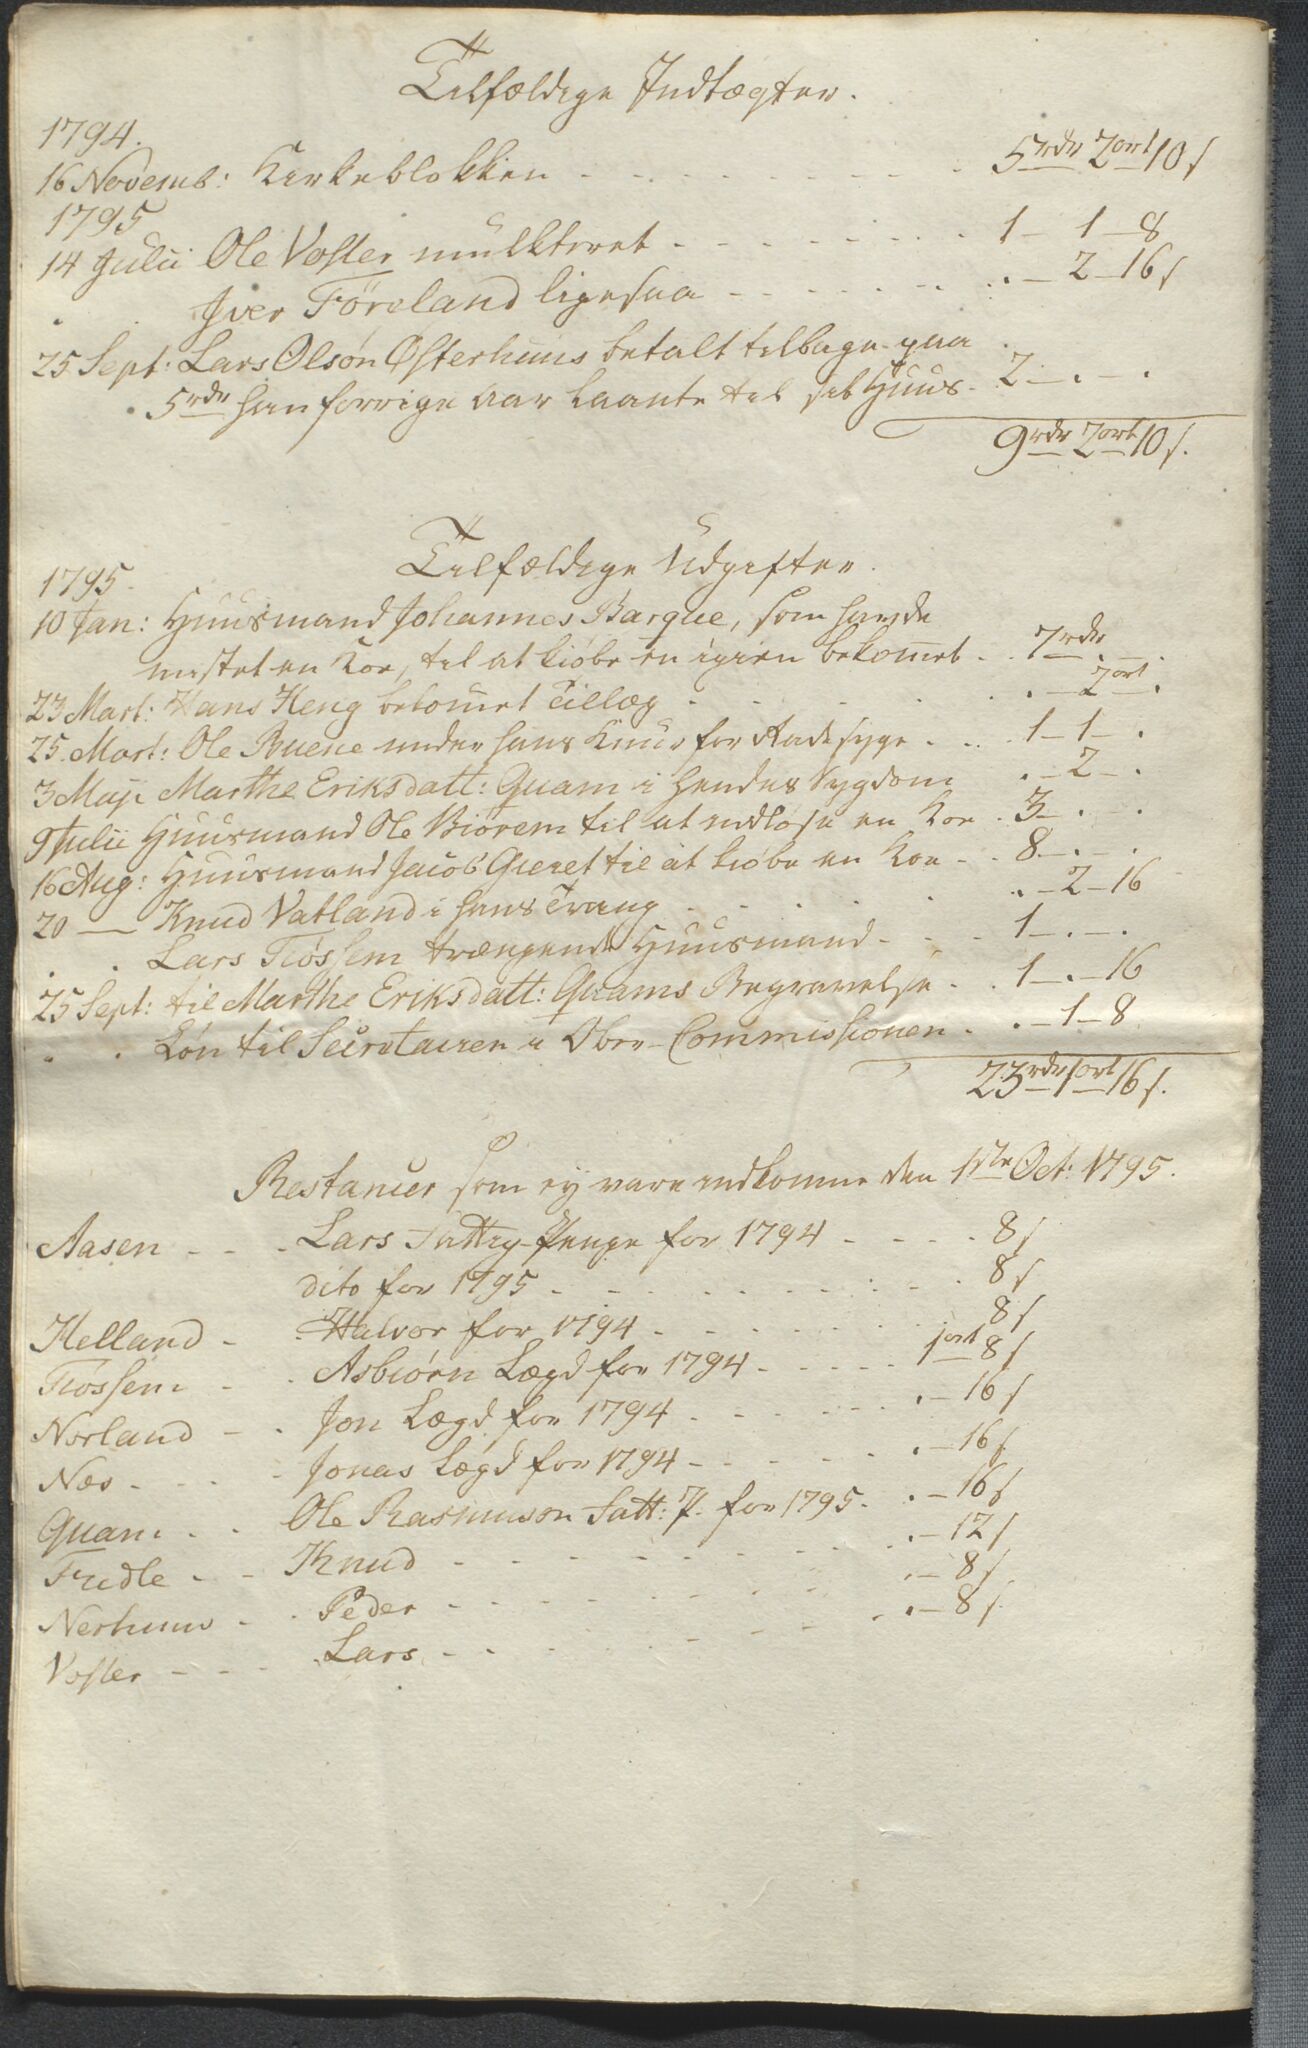 Tilfældige Indtægter.
1794.
16 Novemb: Kirkeblokken - - - - - - - - 5 rdr 2 ort 10 s
1795
14 Julii Ole Vosler mulkteret - - - - - - - - 1 - 1 - 8
. . Iver Föreland ligesaa - - - - - - - . - 2 - 16 s
25 Sept: Lars Olsøn Østerhuus betalt tilbage paa
5 rdr han forrige Aar laante til sit Huus - 2 - . - .
9 rdr 2 ort 10 s.
Tilfældige Udgifter.
1795.
10 Jan: Huusmand Johannes Barque, som havde
mistet en Koe, til at kiøbe en igien bekommet . . 7 rdr - . - .
23 Mart: Hans Heng bekommet Tillæg . . . . . . - 2 ort - .
25. Mart: Ole Ruene under hans Kuur for Radesyge . . . 1 - 1 - .
3 Maji Marthe Eriksdatt: Quam i hendes Sygdom . - 2 - .
9 Julii Huusmand Ole Biorem til at indløse en Koe . 3 - . - .
16 Aug: Huusmand Jacob Gieret til at kiøbe en Koe - . 8 - . - .
20 — Knud Vatland i hans Trang . . . . . . - 2 - 16
. . Lars Tiössem trængende Huusmand - - - - 1 - . - .
25 Sept: til Marthe Eriksdatt: Quams Begravelse . . 1 - . - 16
. . Løn til Secretairen i Over-Commissionen . . - 1 - 8
23 rdr 1 ort 16 s.
Restancer som ey vare indkomne den 1ste Oct: 1795.
Aasen - - - Lars Fattig-Penge for 1794 - - - - 8 s
dito for 1795 - - - - - - - - - 8 s
Helland - . Halvor for 1794 - - - - - - - 8 s
Tiossem - . Asbiørn Lægd for 1794 - - - - - 1 ort 8 s
Norland - . Jon Lægd for 1794 - - - - - - . - 16 s
Næs - - - - Jonas Lægd for 1794 - - - - - . - 16 s
Quam - - Ole Rasmuson Fatt: P. for 1795 - . - 16 s
Fredle - - Knud - - - - - - - - . - 12 s
Nerhuus - . Peder - - - - - - - - . - 8 s
Vosler - - - Lars - - - - - - - - . - 8 s